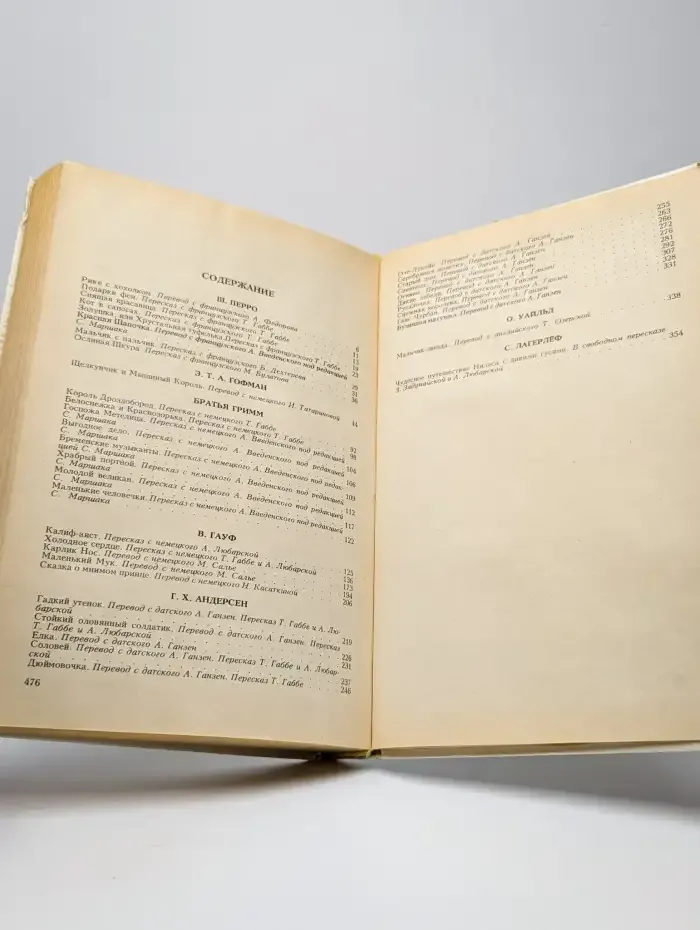 СОДЕРЖАНИЕ
Ш. ПЕРРО
Рике с хохолком. Перевод с французского А. Федорова
Подарки феи. Пересказ с французского Т. Габбе 6
Спящая красавица. Пересказ с французского Т. Габбе 11
Кот в сапогах. Пересказ с французского Т. Габбе 13
Золушка, или Хрустальная туфелька. Пересказ с французского Т. Габбе 19
Красная Шапочка. Перевод с французского А. Введенского под редакцией 23
С. Маршака
Мальчик с пальчик. Пересказ с французского Б. Дехтерева 29
Ослиная Шкура. Пересказ с французского М. Булатова 31
36
Э. Т. А. ГОФМАН
Щелкунчик и Мышиный Король. Перевод с немецкого И. Татариновой 44
БРАТЬЯ ГРИММ
Король Дроздобород. Пересказ с немецкого Т. Габбе
Белоснежка и Краснозорька. Пересказ с немецкого Т. Габбе 92
Госпожа Метелица. Пересказ с немецкого А. Введенского под редакцией 98
С. Маршака
Выгодное дело. Пересказ с немецкого А. Введенского под редакцией 104
Бременские музыканты. Пересказ с немецкого А. Введенского под редак-
цией С. Маршака 106
Храбрый портной. Пересказ с немецкого А. Введенского под редакцией
С. Маршака 109
Молодой великан. Пересказ с немецкого А. Введенского под редакцией
С. Маршака 112
Маленькие человечки. Пересказ с немецкого А. Введенского под редакцией 117
С. Маршака 122
В. ГАУФ
Калиф-аист. Пересказ с немецкого А. Любарской
Холодное сердце. Пересказ с немецкого Т. Габбе и А. Любарской 125
Карлик Нос. Перевод с немецкого М. Салье 136
Маленький Мук. Перевод с немецкого М. Салье 173
Сказка о мнимом принце. Перевод с немецкого Н. Касаткиной 194
206
Г. Х. АНДЕРСЕН
Гадкий утенок. Перевод с датского А. Ганзен. Пересказ Т. Габбе и А. Лю-
барской
Стойкий оловянный солдатик. Перевод с датского А. Ганзен. Пересказ 219
Т. Габбе и А. Любарской
Елка. Перевод с датского А. Ганзен 226
Соловей. Перевод с датского А. Ганзен. Пересказ Т. Габбе и А. Любар- 231
ской
Дюймовочка. Перевод с датского А. Ганзен. Пересказ Т. Габбе 237
246
476
Оле-Лукойе. Перевод с датского А. Ганзен 255
Перевод с датского А. Ганзен 263
Старый дом. Перевод с датского А. Ганзен 266
Свинопас. Перевод с датского А. Ганзен 272
Огниво. Перевод с датского А. Ганзен 276
Дикие лебеди. Перевод с датского А. Ганзен 281
Русалочка. Перевод с датского А. Ганзен 292
Снежная королева. Перевод с датского А. Ганзен 307
Ганс Чурбан. Перевод с датского А. Ганзен 328
Бузинная матушка. Перевод с датского А. Ганзен 331
О. УАЙЛЬД
Мальчик-звезда. Перевод с английского Т. Озерской 338
С. ЛАГЕРЛЕФ
Чудесное путешествие Нильса с дикими гусями. В свободном пересказе
З. Задунайской и А. Любарской 354